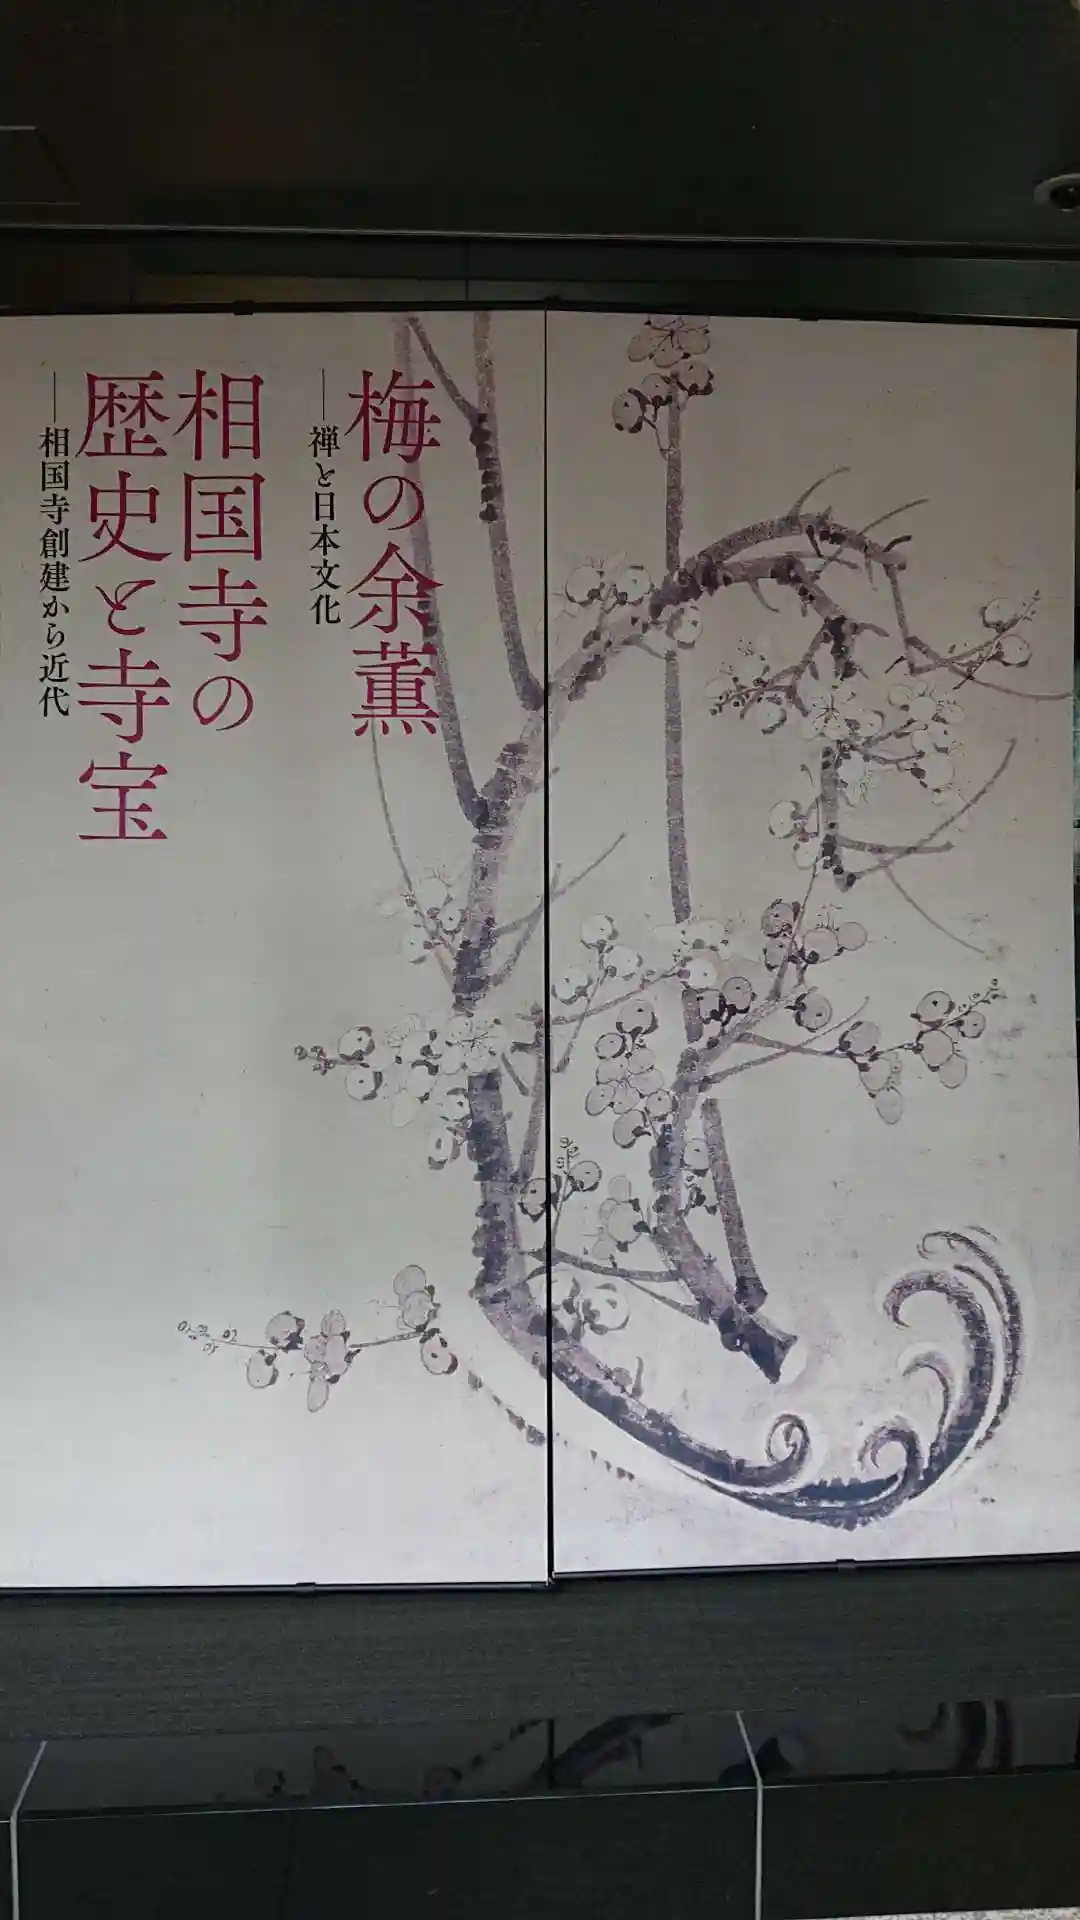 梅の余薫
―禅と日本文化
相国寺の
歴史と寺宝
―相国寺創建から近代